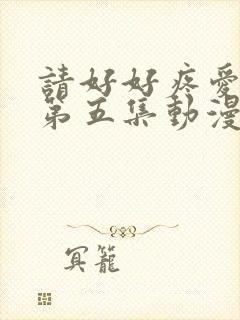 請好好疼愛
第五集動漫
冥籠